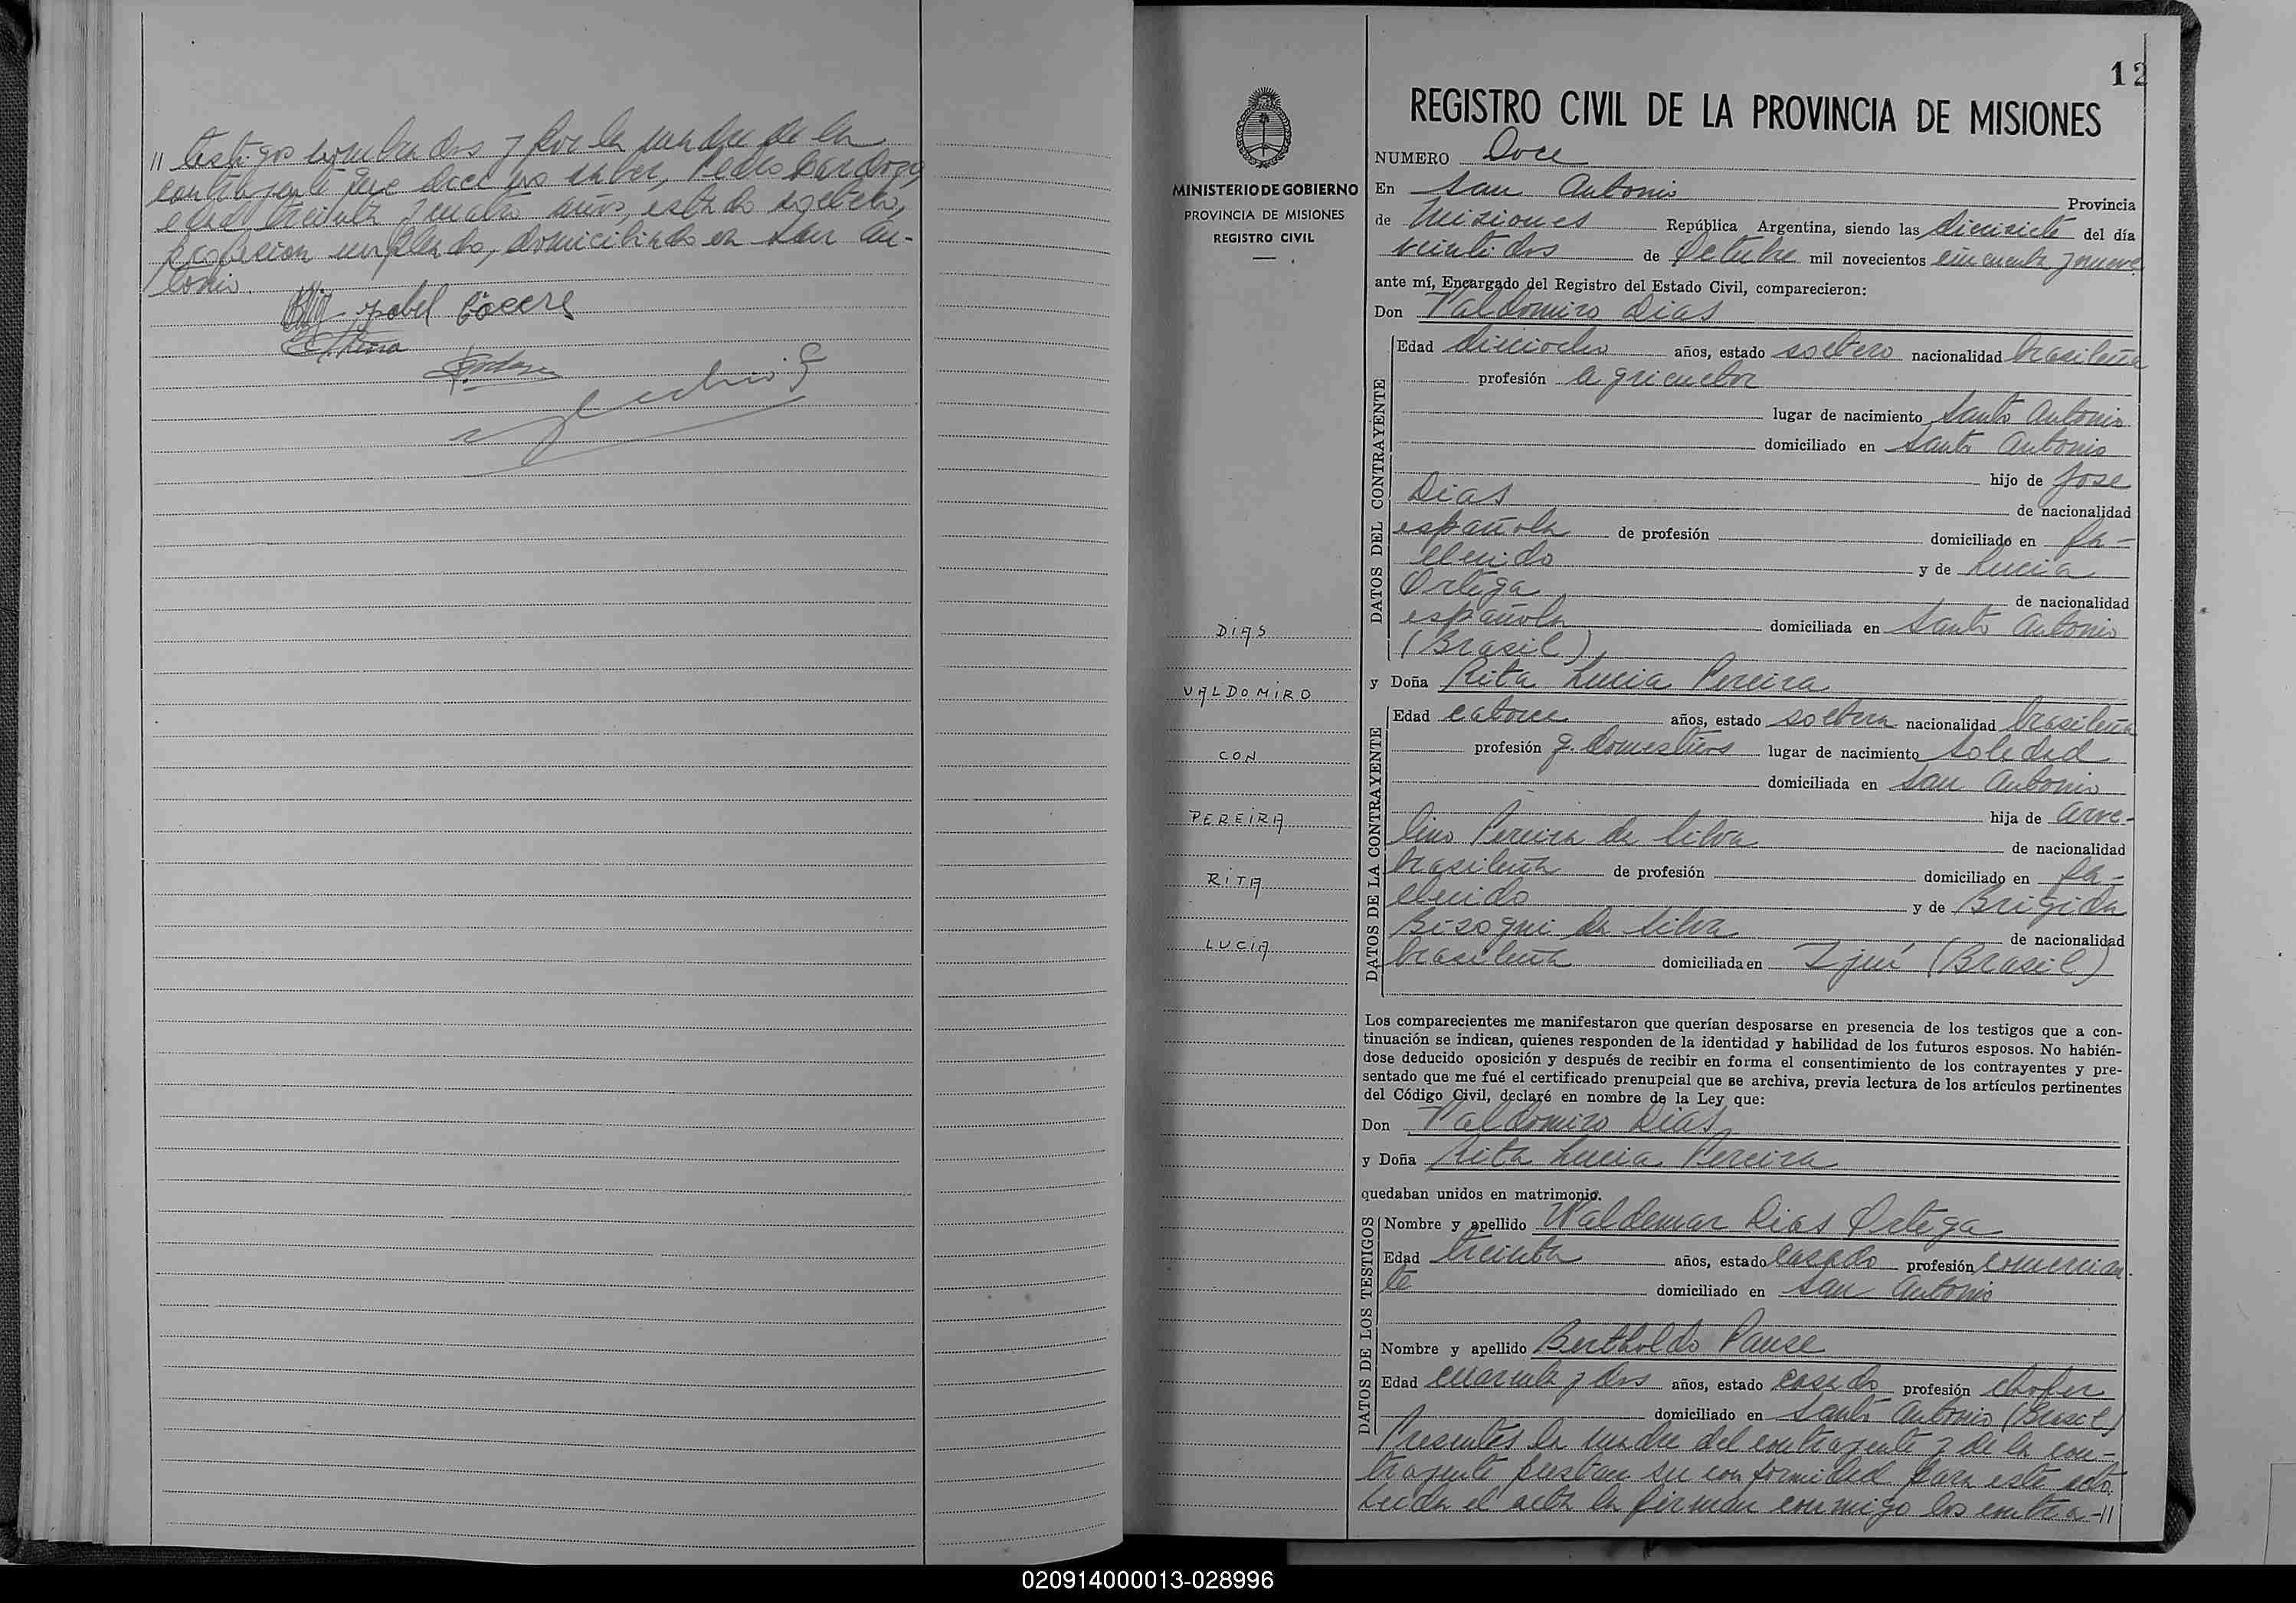 // testigos nombrados y por la madre de la
contrayente que dice no saber, Pedro Cardozo,
edad treinta y cuatro años, estado soltero,
profesion empleado, domiciliado en San An-
tonio.
12
MINISTERIO DE GOBIERNO
PROVINCIA DE MISIONES
REGISTRO CIVIL
DIAS
VALDOMIRO
CON
PEREIRA
RITA
LUCIA
REGISTRO CIVIL DE LA PROVINCIA DE MISIONES
NUMERO Doce
En San Antonio Provincia
de Misiones República Argentina, siendo las diecisiete del día
veintidos de Octubre mil novecientos cincuenta y nueve
ante mí, Encargado del Registro del Estado Civil, comparecieron:
Don Valdomiro Dias
DATOS DEL CONTRAYENTE
Edad dieciocho años, estado soltero nacionalidad brasileña
profesión agricultor
lugar de nacimiento Santo Antonio
domiciliado en Santo Antonio
hijo de Jose
Dias de nacionalidad
española de profesión domiciliado en fa-
llecido y de Lucia
Ortega de nacionalidad
española domiciliada en Santo Antonio
(Brasil)
y Doña Rita Lucia Pereira
DATOS DE LA CONTRAYENTE
Edad catorce años, estado soltera nacionalidad brasileña
profesión q. domesticos lugar de nacimiento Soledad
domiciliada en San Antonio
hija de Arve-
lino Pereira da Silva de nacionalidad
brasileña de profesión domiciliado en fa-
llecido y de Brigida
da Silva de nacionalidad
brasileña domiciliada en Ijuí (Brasil)
Los comparecientes me manifestaron que querían desposarse en presencia de los testigos que a con-
tinuación se indican, quienes responden de la identidad y habilidad de los futuros esposos. No habién-
dose deducido oposición y después de recibir en forma el consentimiento de los contrayentes y pre-
sentado que me fué el certificado prenupcial que se archiva, previa lectura de los artículos pertinentes
del Código Civil, declaré en nombre de la Ley que:
Don Valdomiro Dias
y Doña Rita Lucia Pereira
quedaban unidos en matrimonio.
DATOS DE LOS TESTIGOS
Nombre y apellido Waldemar Dias Ortega
Edad treinta años, estado casado profesión comercian-
te domiciliado en San Antonio
Nombre y apellido Bertholdo Pause
Edad cuarenta y dos años, estado casado profesión chofer
domiciliado en Santo Antonio (Brasil)
Presentes la madre del contrayente y de la con-
trayente prestan su conformidad para este acto.
Leida el acta la firman conmigo los contra-//
020914000013-028996